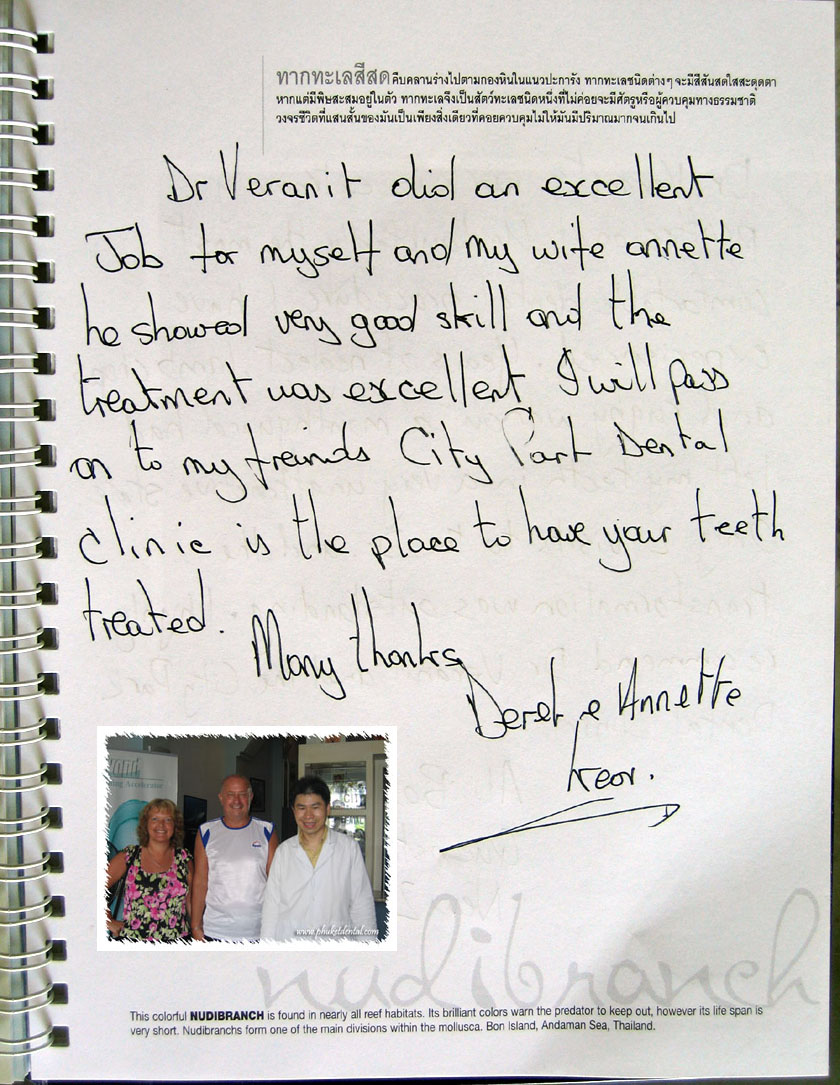 ทากทะเลสีสด คืบคลานร่างไปตามกองหินในแนวปะการัง ทากทะเลชนิดต่างๆ จะมีสีสันสดใสสะดุดตา
หากแต่มีพิษสะสมอยู่ในตัว ทากทะเลจึงเป็นสัตว์ทะเลชนิดหนึ่งที่ไม่ค่อยจะมีศัตรูหรือผู้ควบคุมทางธรรมชาติ
วงจรชีวิตที่แสนสั้นของมันเป็นเพียงสิ่งเดียวที่คอยควบคุมไม่ให้มันมีปริมาณมากจนเกินไป
Dr Veranit did an excellent
Job for myself and my wife annette
he showed very good skill and the
treatment was excellent I will pass
on to my freinds City Part Dental
clinic is the place to have your teeth
treated.
Many thanks
Derek e Annette
www.phuketdental.com
nudibranch
This colorful NUDIBRANCH is found in nearly all reef habitats. Its brilliant colors warn the predator to keep out, however its life span is
very short. Nudibranchs form one of the main divisions within the mollusca. Bon Island, Andaman Sea, Thailand.